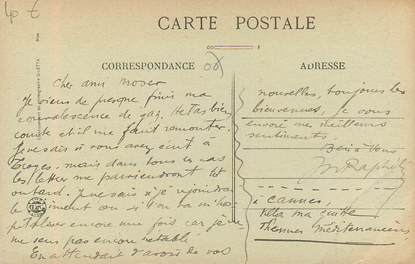 CARTE POSTALE
CORRESPONDANCE
ADRESSE
Cher ami Moser
Je viens de presque finir ma
convalescence de gaz. Hélas bien
courte et il me faut remonter.
Je ne sais si vous avez écrit à
Troyes, mais dans tous les cas
les lettres me parviendront tôt
ou tard. Je ne sais si je rejoindrai
le régiment ou si l'on va m'hos-
pitaliser encore une fois car je
me sens pas encore rétabli
En attendant d'avoir de vos
nouvelles, toujours les
bienvenues, je vous
envoie mes meilleurs
sentiments.
Bien à vous
à Cannes,
Villa ma